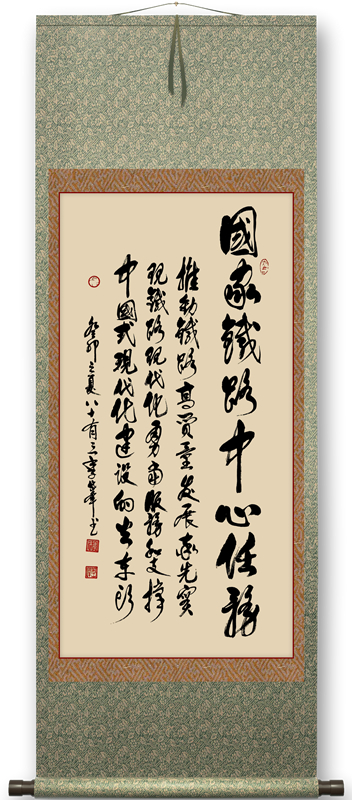 國家鐵路中心任務
推動鐵路高質量發展率先實
現鐵路現代化勇當服務和支撐
中國式現代化建设的火車头
癸卯之夏八十有三李華书